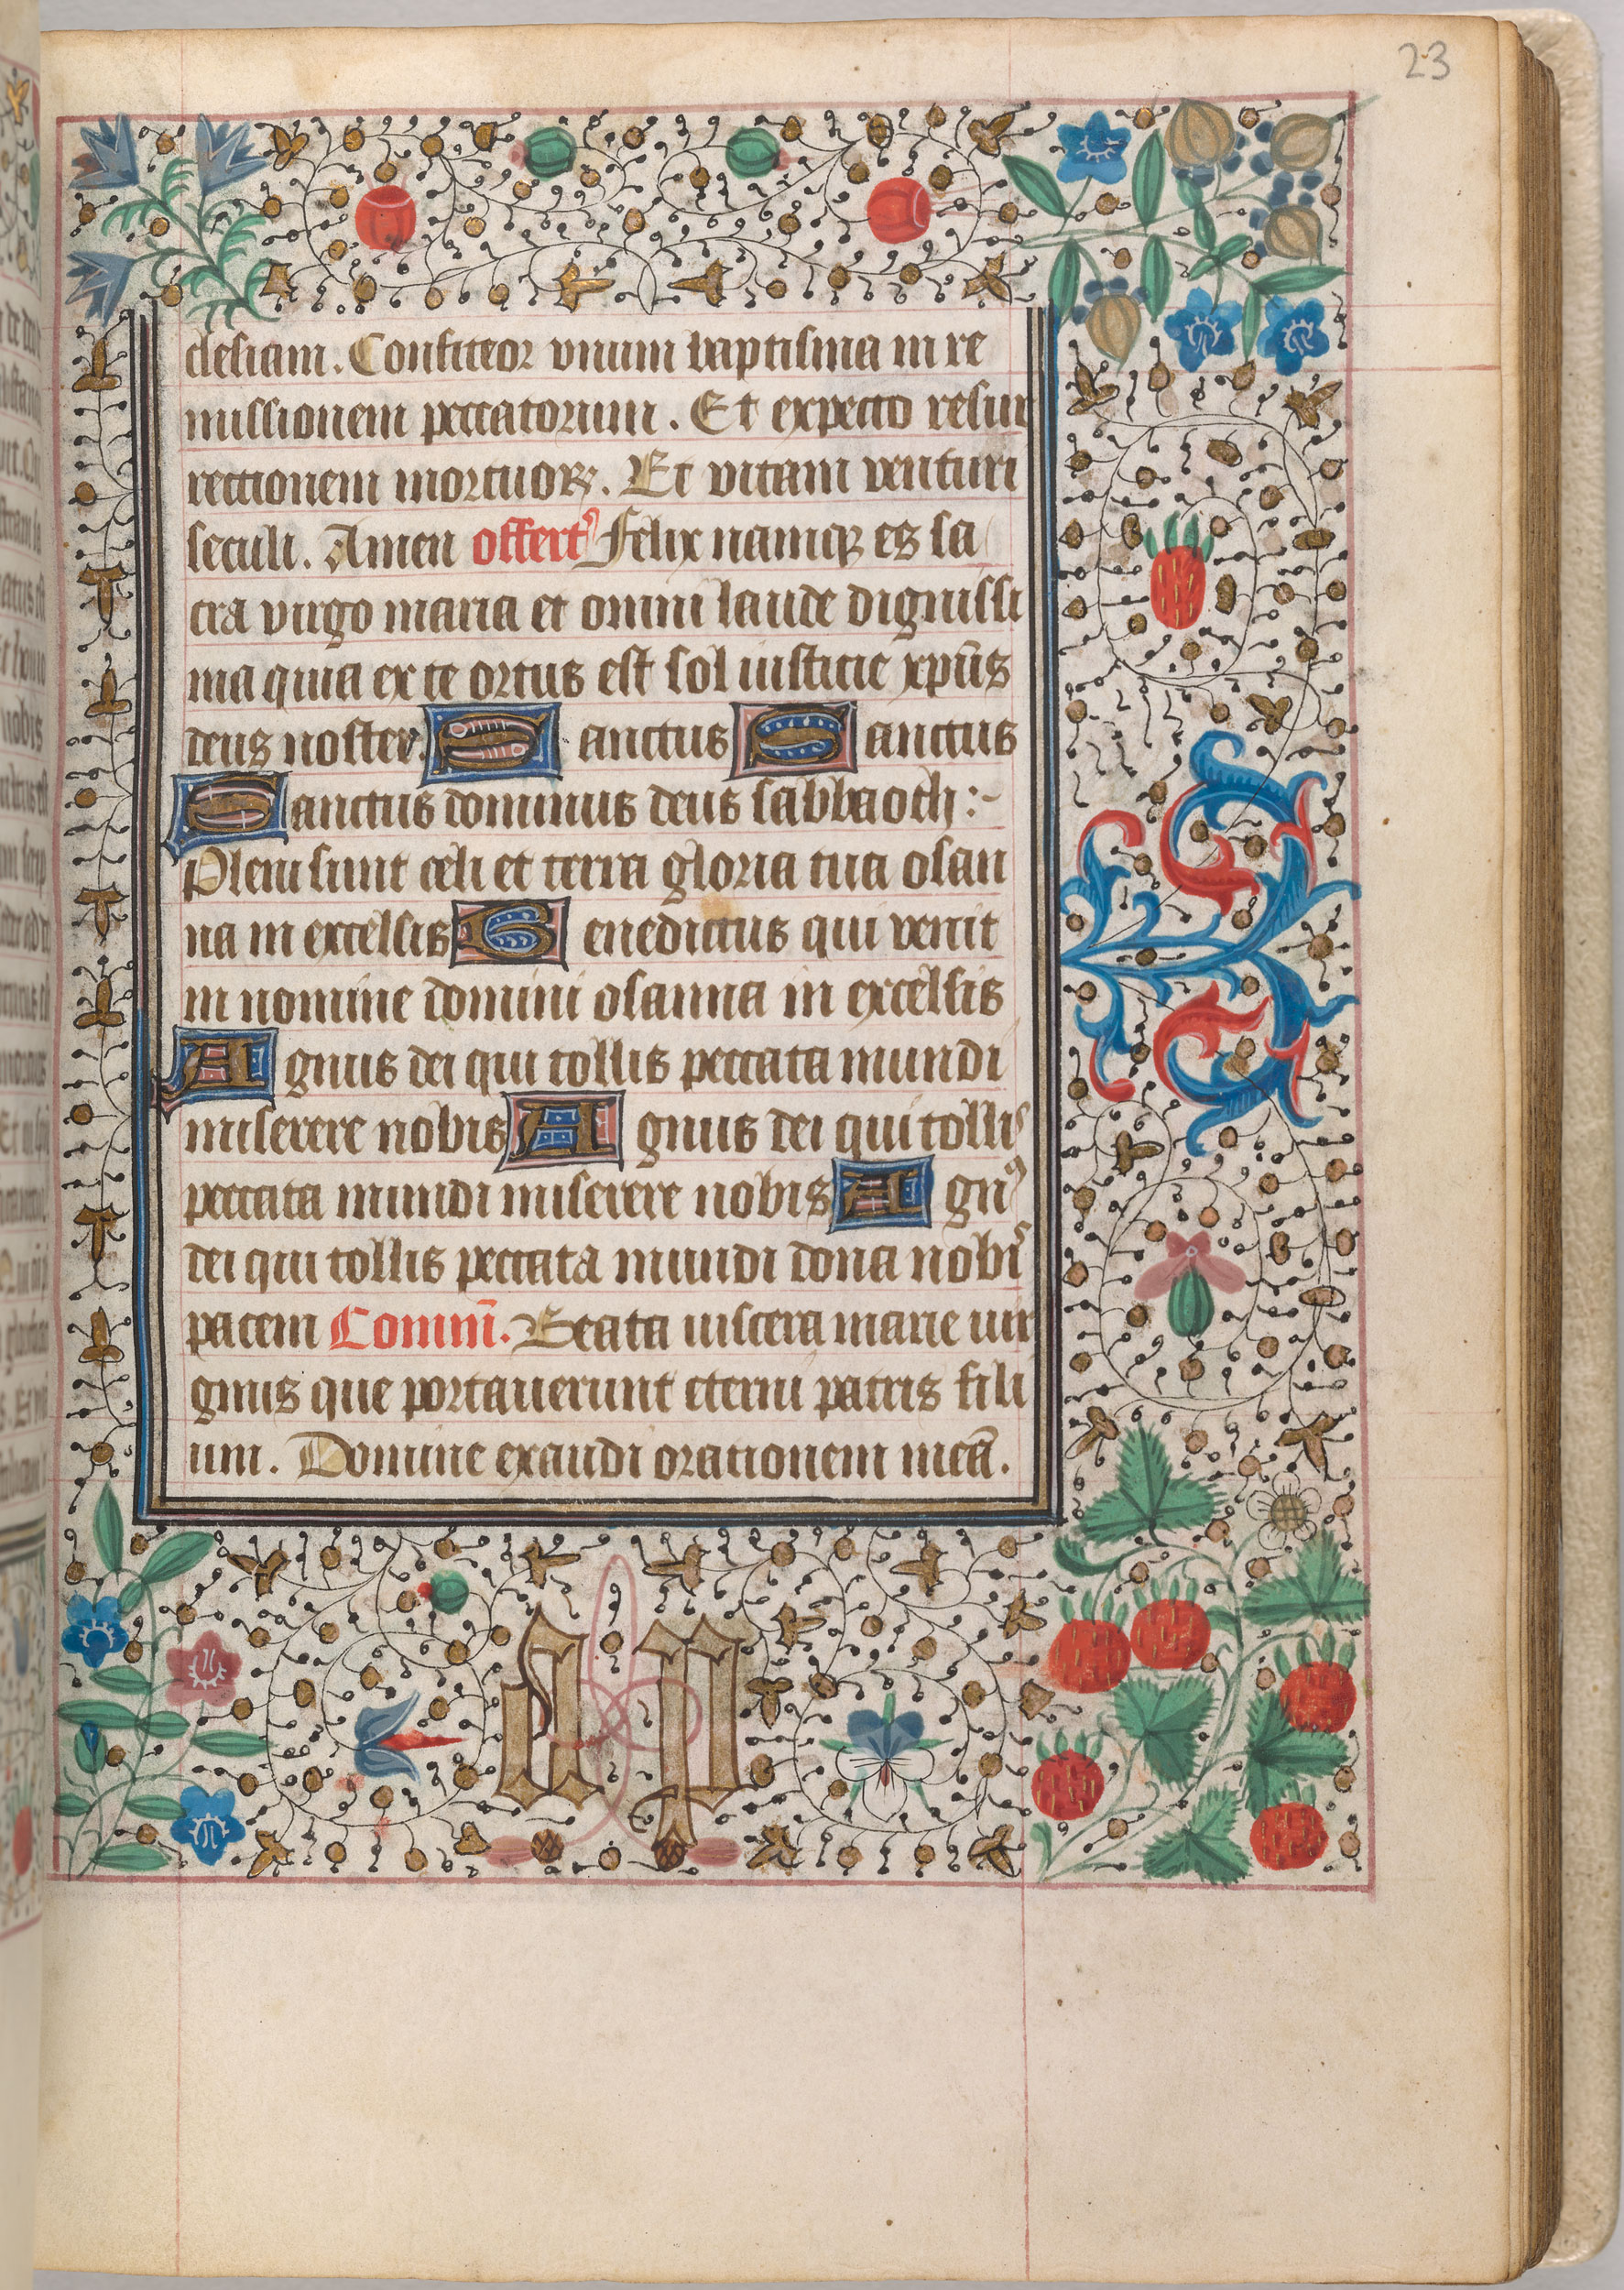 23
clesiam. Confiteor vnum baptisma in re
missionem peccatorum. Et expecto resur
rectionem mortuoꝝ. Et vitam venturi
seculi. Amen offert᾿ Felix namqꝫ es sa
cra virgo maria et omni laude dignissi
ma quia ex te ortus est sol iusticie xp̄us
deus noster. Sanctus Sanctus
Sanctus dominus deus sabbaoth :-
Pleni sunt celi et terra gloria tua osan
na in excelsis Benedictus qui venit
in nomine domini osanna in excelsis
Agnus dei qui tollis peccata mundi
miserere nobis Agnus dei qui tollis
peccata mundi miserere nobis Agnꝰ
dei qui tollis peccata mundi dona nobis
pacem Comm̄. Beata uiscera marie uir
ginis que portauerunt eterni patris fili
um. Domine exaudi orationem meā.